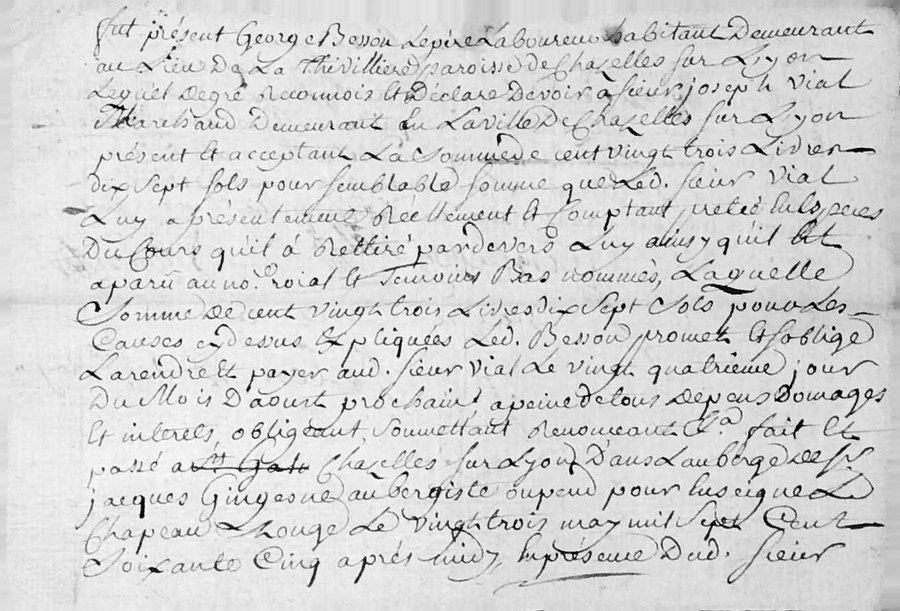 fut présent George Besson Lepère Laboureur habitant Demeurant
au Lieu De La Thivilliere paroisse de Chazelles sur Lyon
Lequel de gré Reconnois Et Déclare Devoir a sieur joseph Vial
Marchand Demeurant En La ville De Chazelles sur Lyon
présent Et acceptant La Somme de cent vingt trois Livres
dix Sept sols pour semblable somme que Led. sieur Vial
Luy a présentement Réellement Et Comptant preté En Espéces
Du Cours qu'il á Rettiré pardevers Luy ainsy qu'il Est
aparû au no.re roial Et Temoins Bas nommés, Laquelle
Somme de cent vingt trois Livres dix Sept Sols pour Les
Causes cy dessus Expliquées Led. Besson promet Et s'oblige
La rendre Et payer aud. sieur Vial Le vingt quatrieme jour
Du Mois D'aoust prochain a peine de tous depens Domages
Et interets, obligeant, Soumettant Renonceant &.a fait Et
passé a St Gal Chazelles sur Lyon Dans L'auberge de Sr.
jacques Gingesne aubergiste ou pend pour Enseigne Le
Chapeau Rouge Le vingt trois may mil Sept Cent
Soixante Cinq aprés midy, En présence Dud. sieur